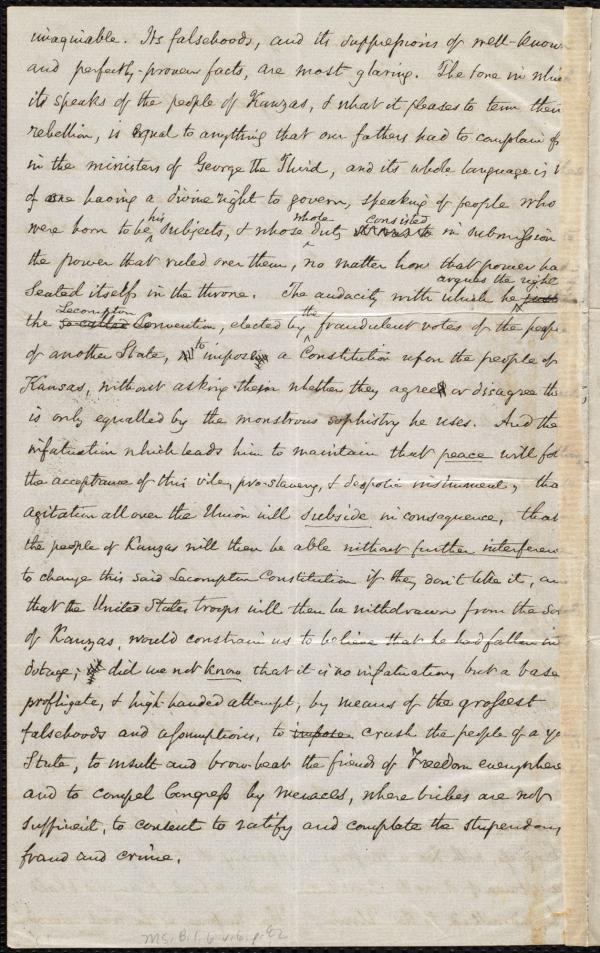 imaginable. Its falsehoods, and its suppressions of well-know
and perfectly-proven facts, are most glaring. The tone in whi
its speaks of the people of Kanzas, & what it pleases to term their
rebellion, is equal to anything that our fathers had to complain of
in the ministers of George the Third, and its whole language is
of one having a divine right to govern, speaking of people who
were born to be his subjects, & whose whole duty consisted in submission
the power that ruled over them, no matter how that power ha
seated itself in the throne. The audacity with which he argues the right
the Lecompton Convention, elected by the fraudulent votes of the peop
of another State, to impose a Constitution upon the people of
Kansas, without asking them whether they agree or disagree the
is only equalled by the monstrous sophistry he uses. And the
infatuation which leads him to maintain that peace will fol
the acceptance of this vile, pro-slavery, & despotic instrument, tha
agitation all over the Union will subside in consequence, that
the people of Kanzas will then be able without further interferen
to change this said Lecompton Constitution if they don't like it, an
that the United States troops will then be withdrawn from the so
of Kanzas, would constrain us to believe that he had fallen in
dotage, did we not know that it is no infatuation, but a base
profligate, & high-handed attempt, by means of the grossest
falsehoods and assumptions, to impose crush the people of a
State, to insult and brow-beat the friends of Freedom everywhere
and to compel Congress by menaces, where bribes are not
sufficient, to consent to ratify and complete the stupendous
fraud and crime.